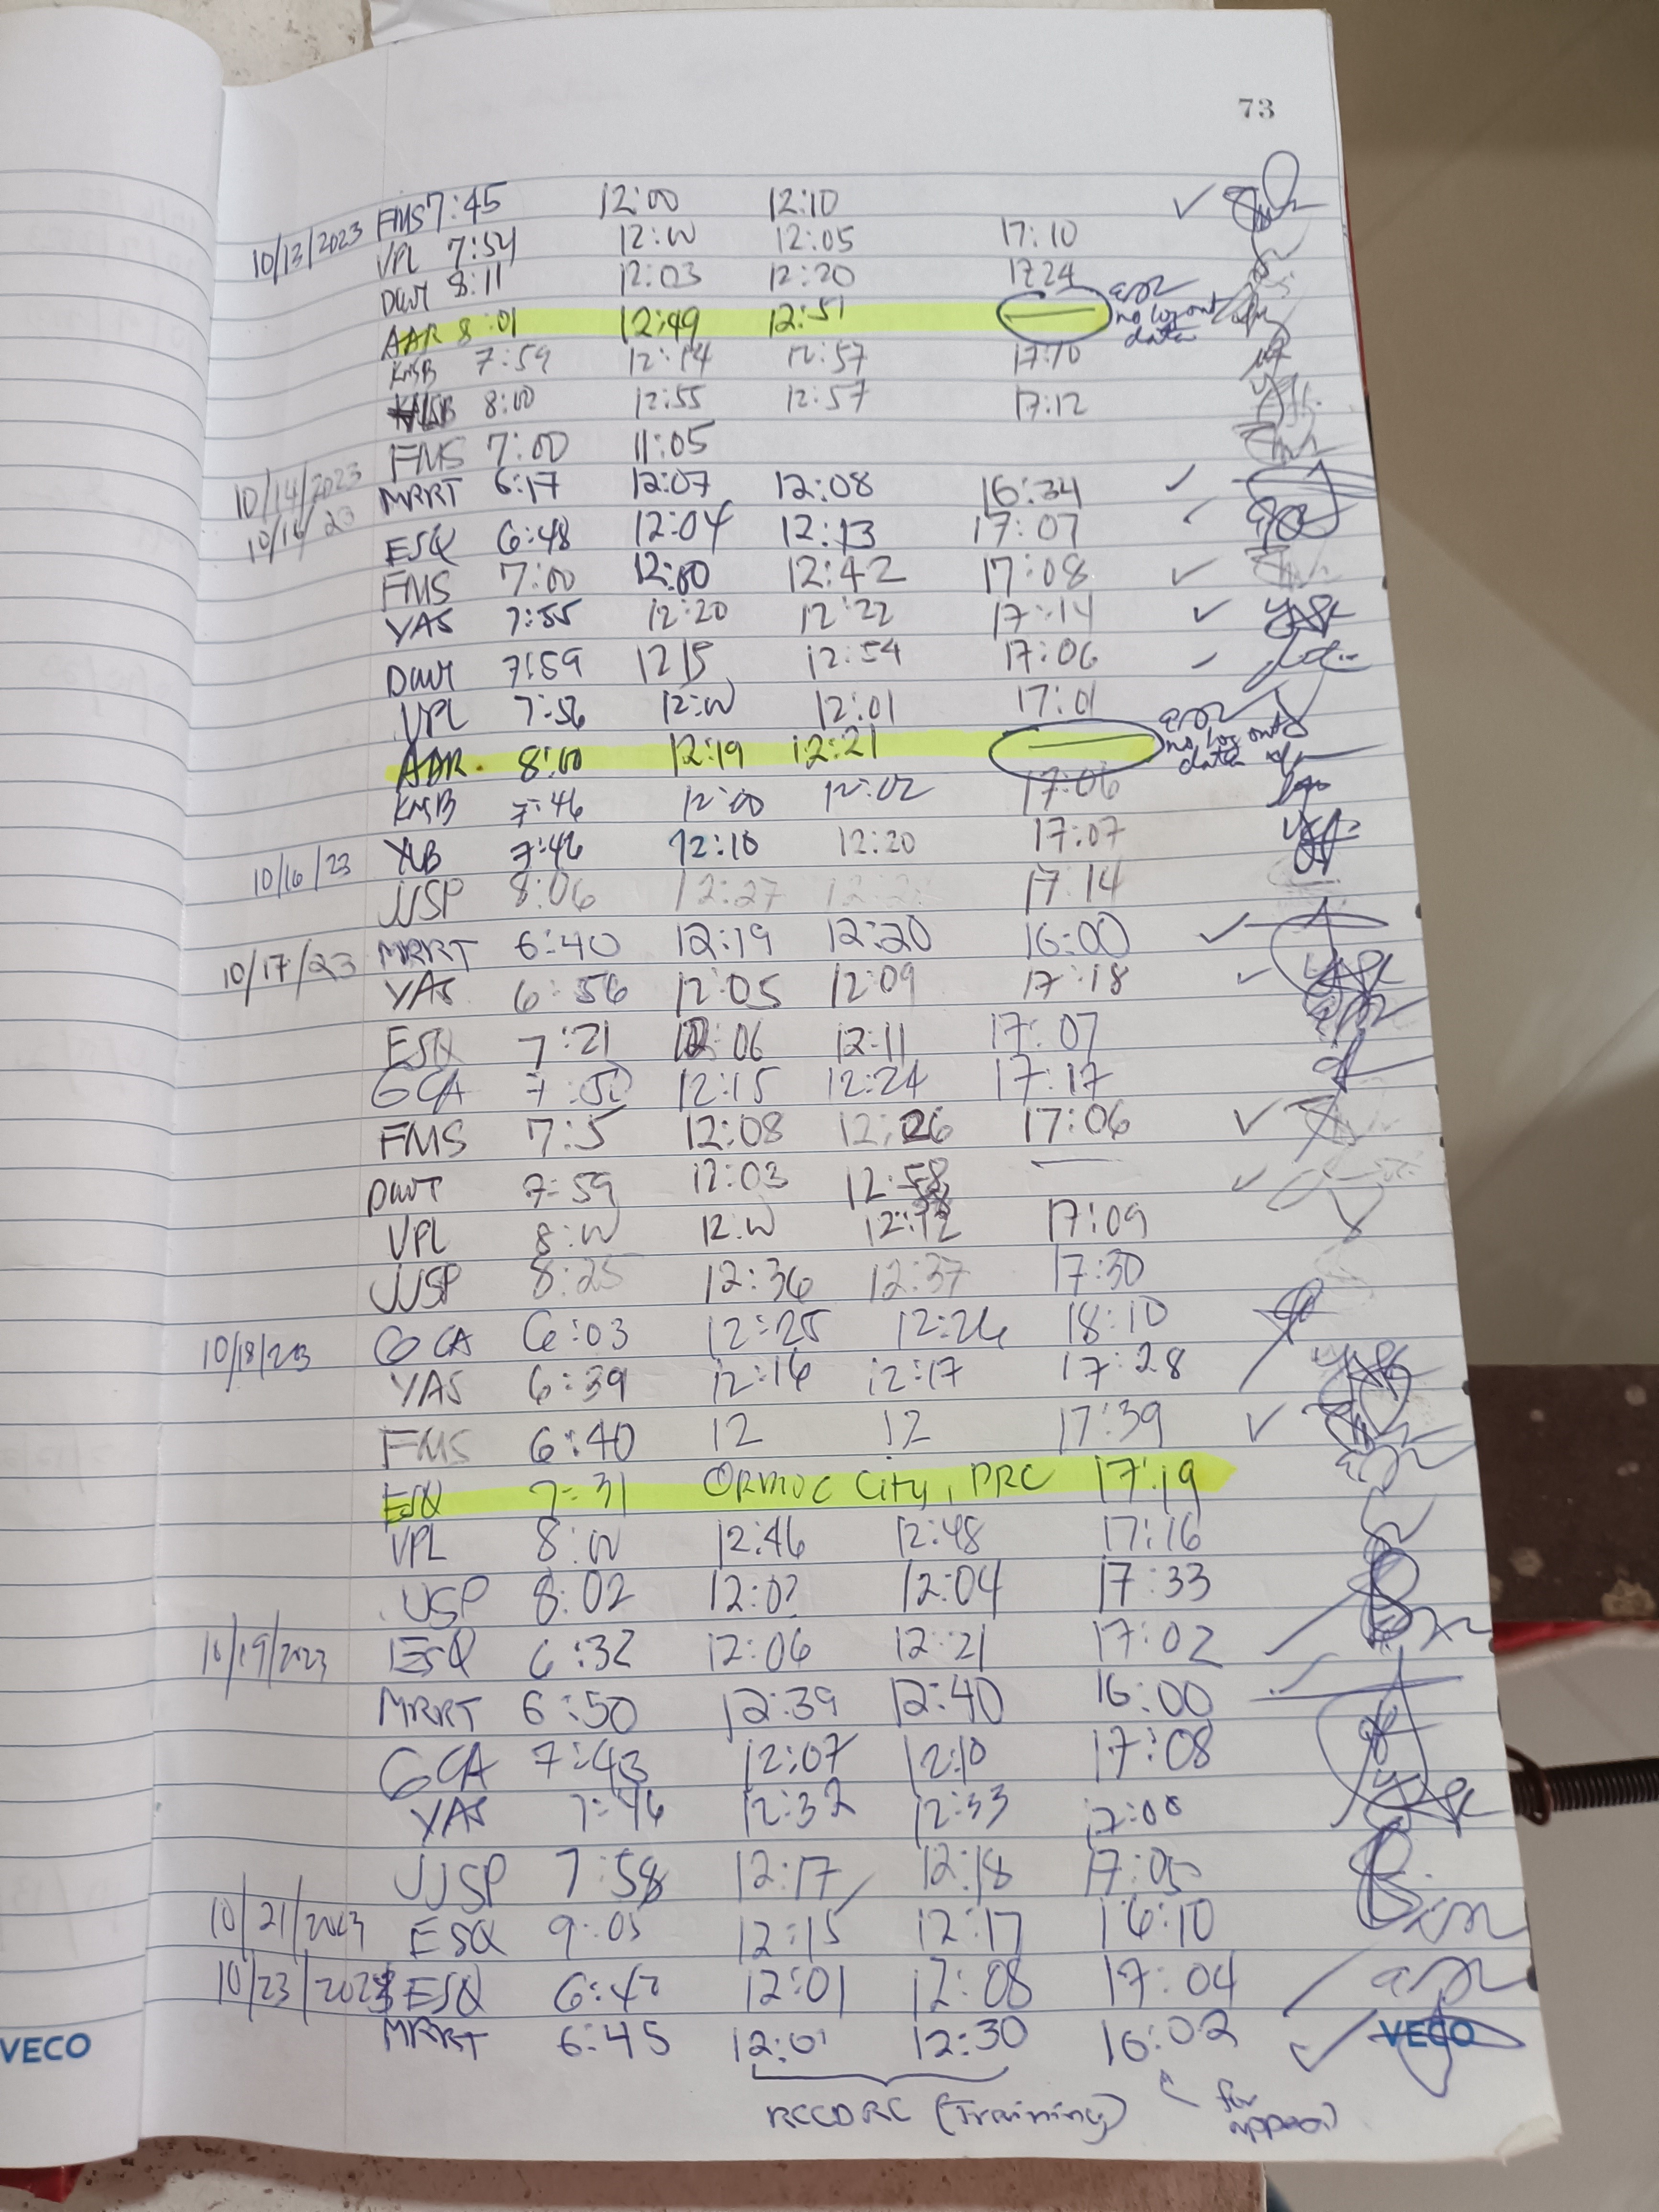 73
FMS 7:45 12:00 12:10
10/13/2023 VPL 7:54 12:00 12:05 17:10
DWT 8:11 12:03 12:20 17:24
AAR 8:01 12:49 12:51 — no log out data
KMSB 7:59 12:14 12:57 17:10
8:00 12:55 12:57 17:12
FMS 7:00 11:05
10/14/2023 MRRT 6:17 12:07 12:08 16:34
10/16/23 ESQ 6:48 12:04 12:13 17:07
FMS 7:00 12:00 12:42 17:08
YAS 7:55 12:20 12:22 17:14
DWT 7:59 1215 12:54 17:06
VPL 7:56 12:00 12:01 17:01
AAR 8:00 12:19 12:21 — no log out data
KMSB 7:46 12:00 12:02 17:06
10/16/23 YLB 7:46 12:10 12:20 17:07
JJSP 8:06 12:27 17:14
MRRT 6:40 12:19 12:20 16:00
10/17/23 YAS 6:56 12:05 12:09 17:18
ESQ 7:21 12:06 12:11 17:07
GCA 12:15 12:24 17:17
FMS 7:5 12:08 12:26 17:06
DWT 7:59 12:03 12:58 —
VPL 8:00 12:00 12:12 17:09
JJSP 8:25 12:36 12:37 17:30
10/18/23 GCA 6:03 12:25 12:26 18:10
YAS 6:39 12:16 12:17 17:28
FMS 6:40 12 12 17:39
ESQ 7:31 Ormoc City, PRC 17:19
VPL 8:00 12:46 12:48 17:16
JJSP 8:02 12:02 12:04 17:33
10/19/2023 ESQ 6:32 12:06 12:21 17:02
MRRT 6:50 12:39 12:40 16:00
GCA 7:43 12:07 12:10 17:08
YAS 7:46 12:32 12:33 17:00
JJSP 7:58 12:17 12:18 17:05
10/21/2023 ESQ 9:05 12:15 12:17 16:10
10/23/2023 ESQ 6:42 12:01 12:08 17:04
MRRT 6:45 12:01 12:30 16:02
VECO
VECO
RCCDRC (Training) for